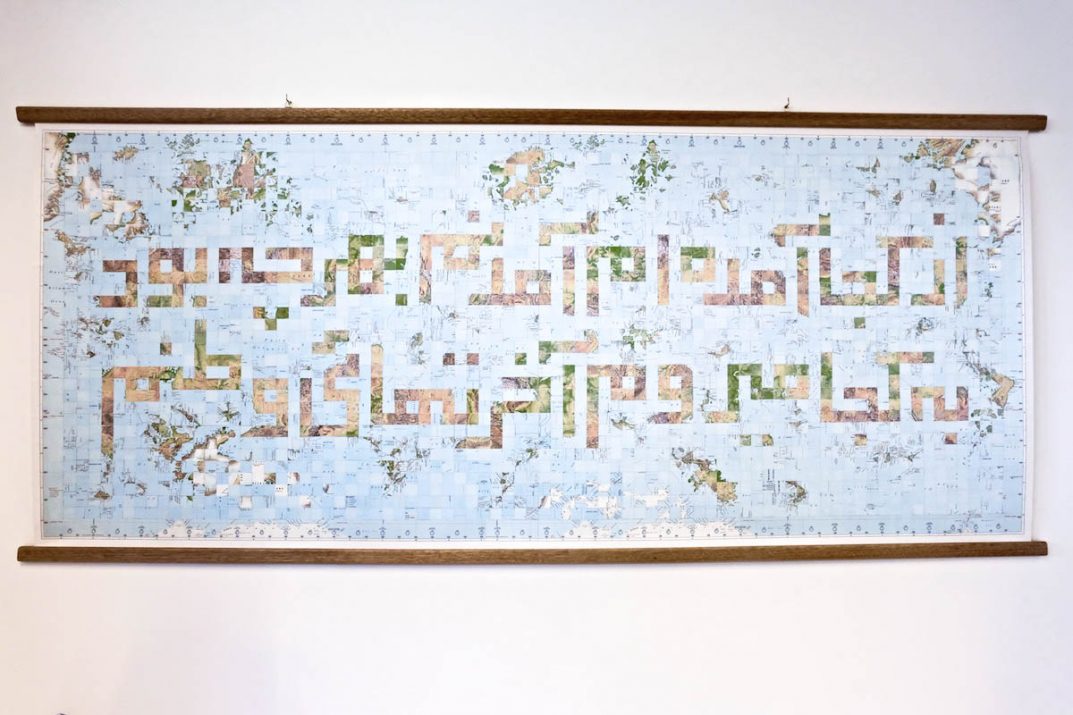 از کجا آمده ام آمدنم بهر چه بود
به کجا میروم آخر ننمایی وطنم